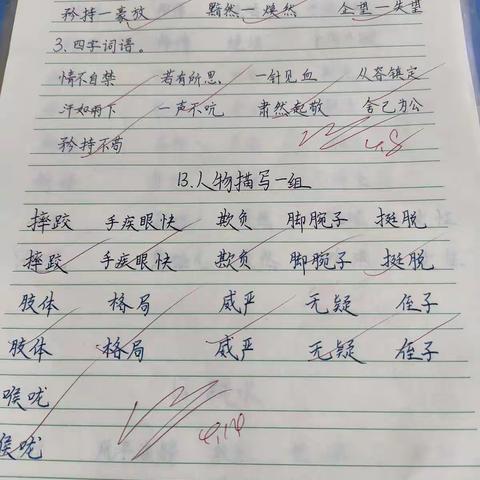 矜持一豪放 黯然一焕然 企望一失望
3.四字词语。
情不自禁 若有所思 一针见血 从容镇定
汗如雨下 一声不吭 肃然起敬 舍己为公
矜持不苟 4.8
13.人物描写一组
摔跤 手疾眼快 欺负 脚腕子 挺脱
摔跤 手疾眼快 欺负 脚腕子 挺脱
胶体 格局 威严 无疑 侄子
胶体 格局 威严 无疑 侄子
喉咙
喉咙 4.14